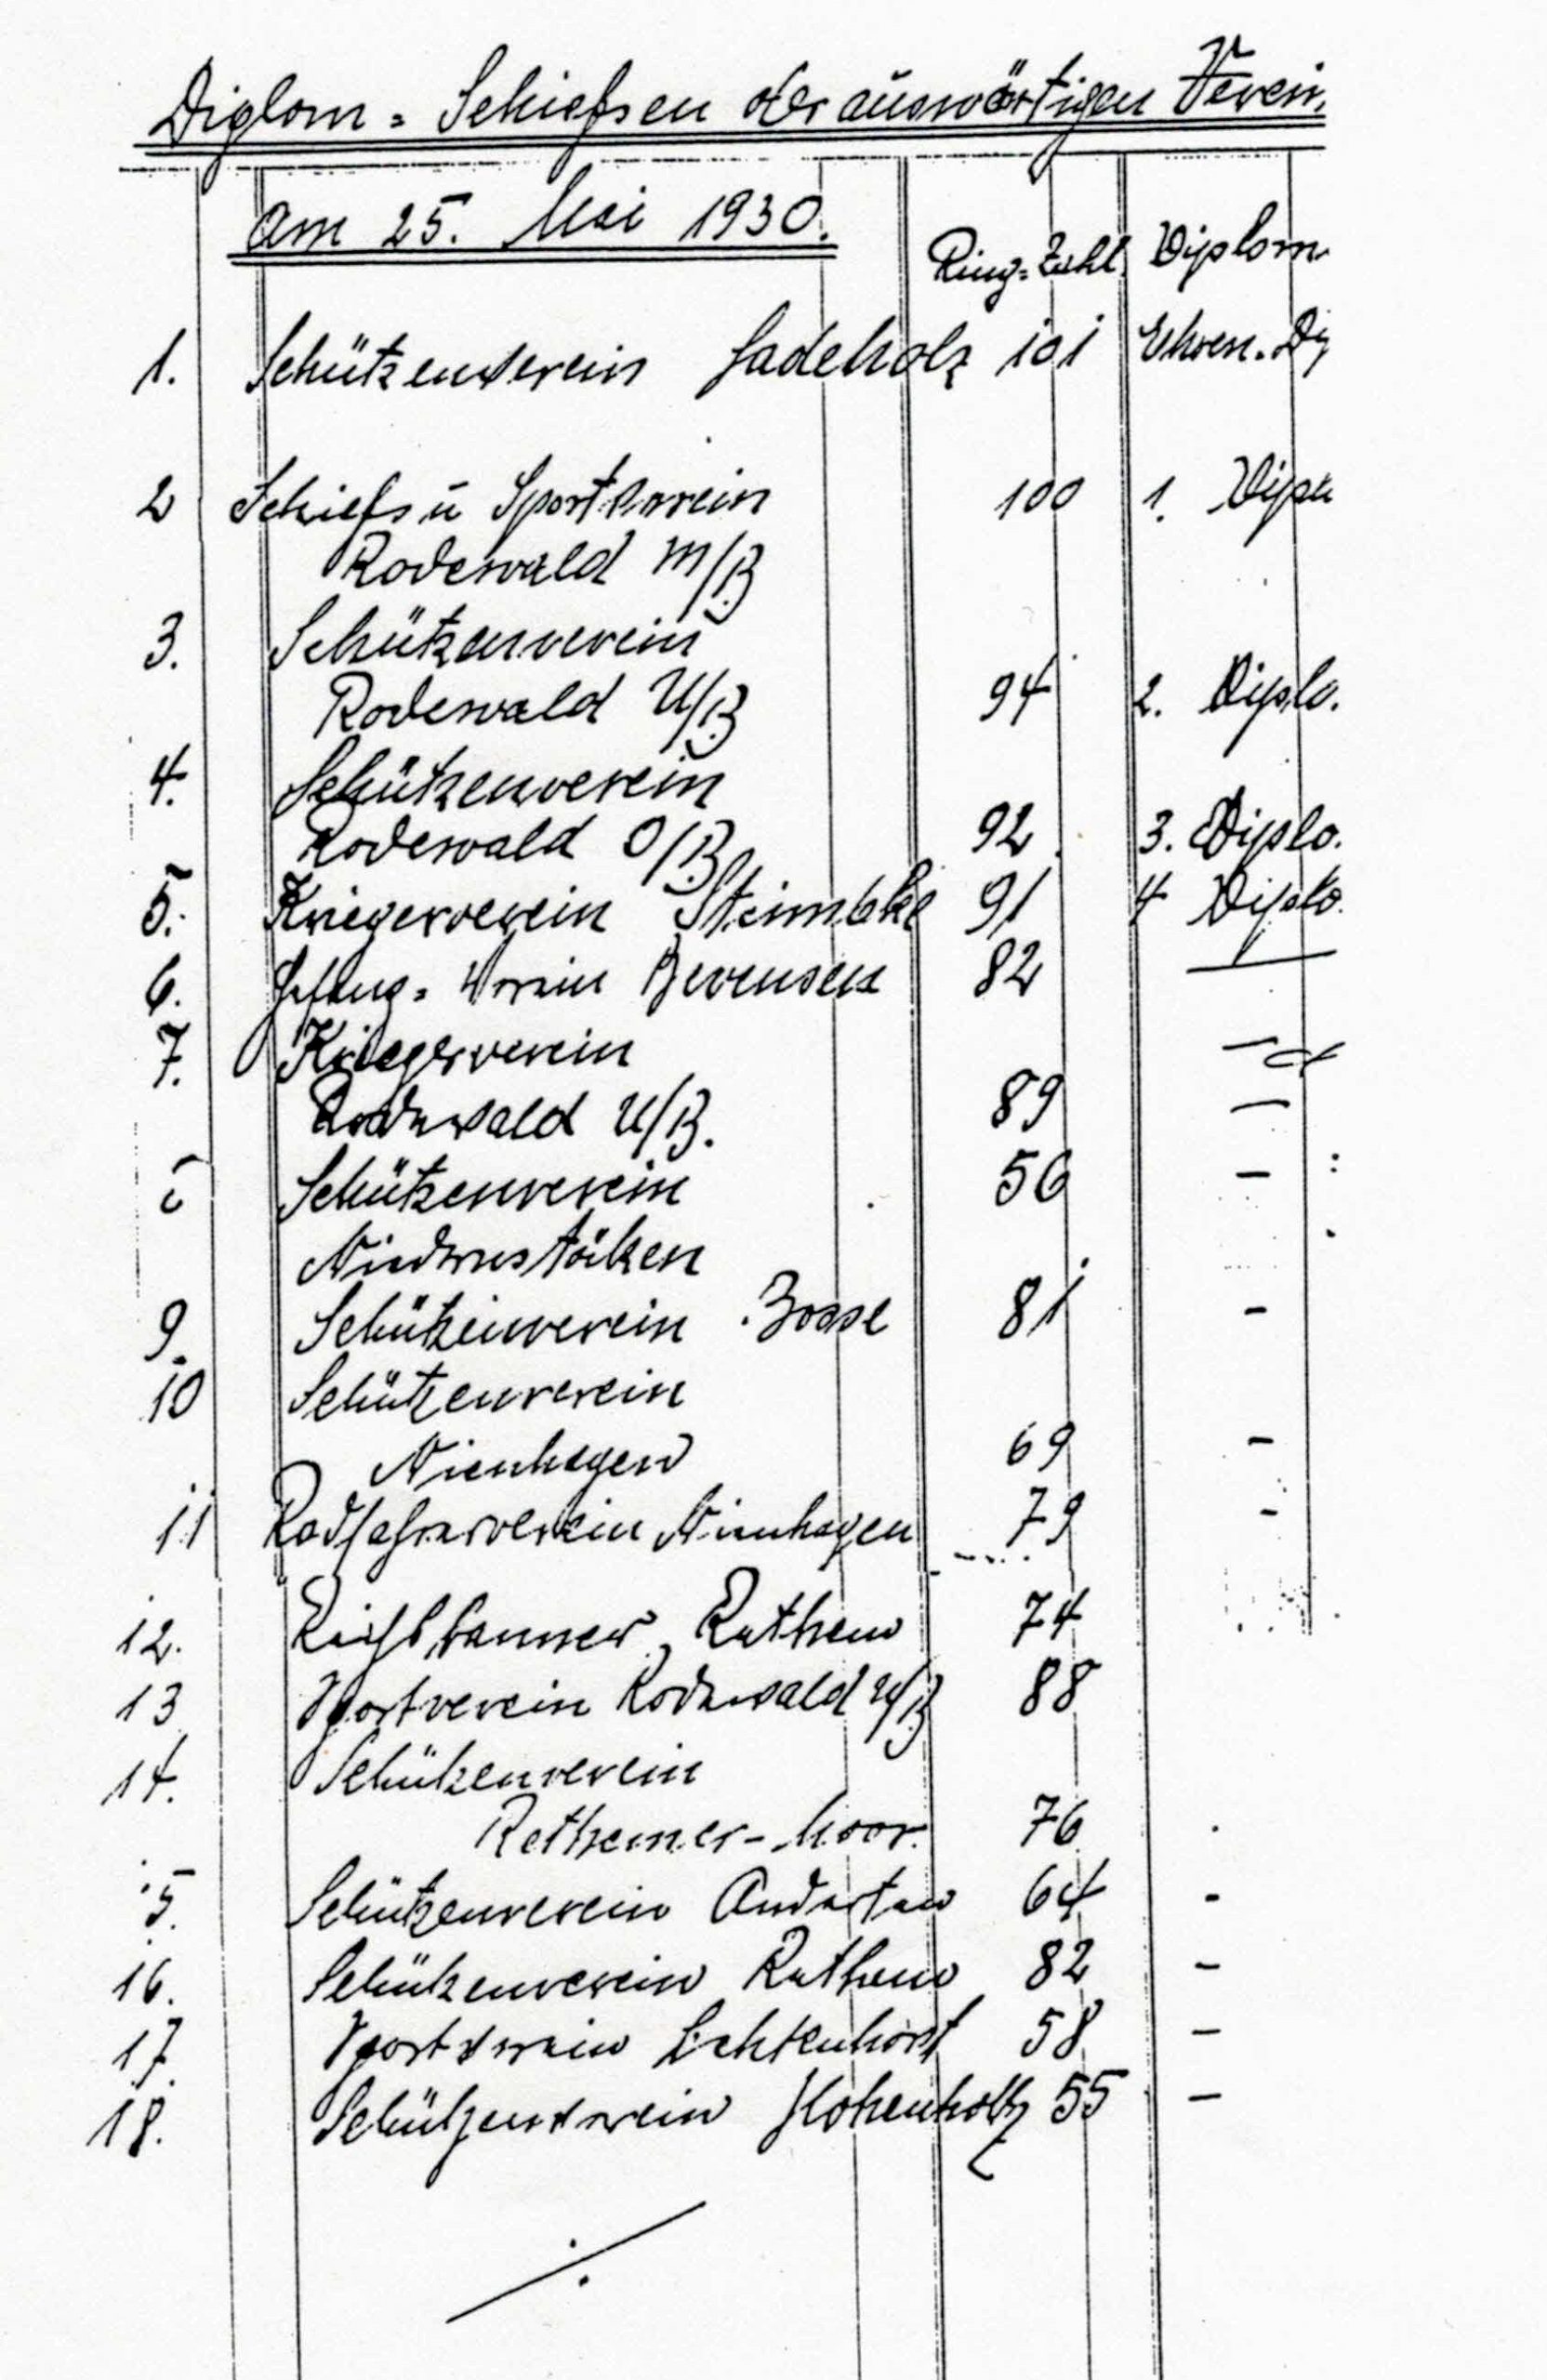 Diplom = Schießen der auswärtigen Verein.
am 25. Mai 1930.
Ring=Zahl. Diplom
1. Schützenverein Hadeholz 101 Ehren. Di
2 Schieß u Sportverein 100 1. Diplo
Rodewald M/B
3. Schützenverein
Rodewald U/B 94 2. Diplo.
4. Schützenverein
Rodewald O/B 92 3. Diplo.
5. Kriegerverein Steimbke 91 4 Diplo.
6. Gesang = Verein Bevensen 82 —
7. Kriegerverein
Rodewald U/B. 89 —
Schützenverein 56 –
Niedernstöcken
9. Schützenverein Bosse 81 -
10 Schützenverein
Nienhagen 69 –
11 Radfahrerverein Nienhagen 79 -
12. Reichsbanner, Rethem 74
13 Sportverein Rodewald U/B 88
14. Schützenverein
Rethemer - Moor. 76
15. Schützenverein Anderten 64 -
16. Schützenverein Rethem 82 –
17. Sportverein Lichtenhorst 58 –
18. Schützenverein Hohenholz 55 –